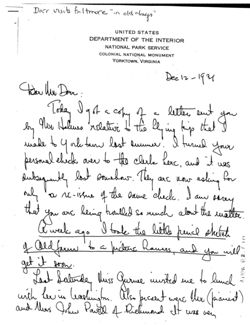 Dorr visits Biltmore "in old days"
UNITED STATES
DEPARTMENT OF THE INTERIOR
NATIONAL PARK SERVICE
COLONIAL NATIONAL MONUMENT
YORKTOWN, VIRGINIA
Dec 12 - 1931
Dear Mr. Dorr:
Today I got a copy of a letter sent you
by Mrs relative to the flying trip that I
made to Yorktown last summer. I turned your
personal check over to the clerk here, and it was
subsequently lost somehow. They are now asking for
only a re-issue of the same check. I am sorry
that you are being bothered so much about the matter.
A week ago I took the little pencil sketch
of "Old Farm" to a picture framer, and you will
get it soon.
Last Saturday Miss Gurnee invited me to lunch
with her in Washington. Also present were Mr.
and Mrs. John Powell of Richmond. It was very